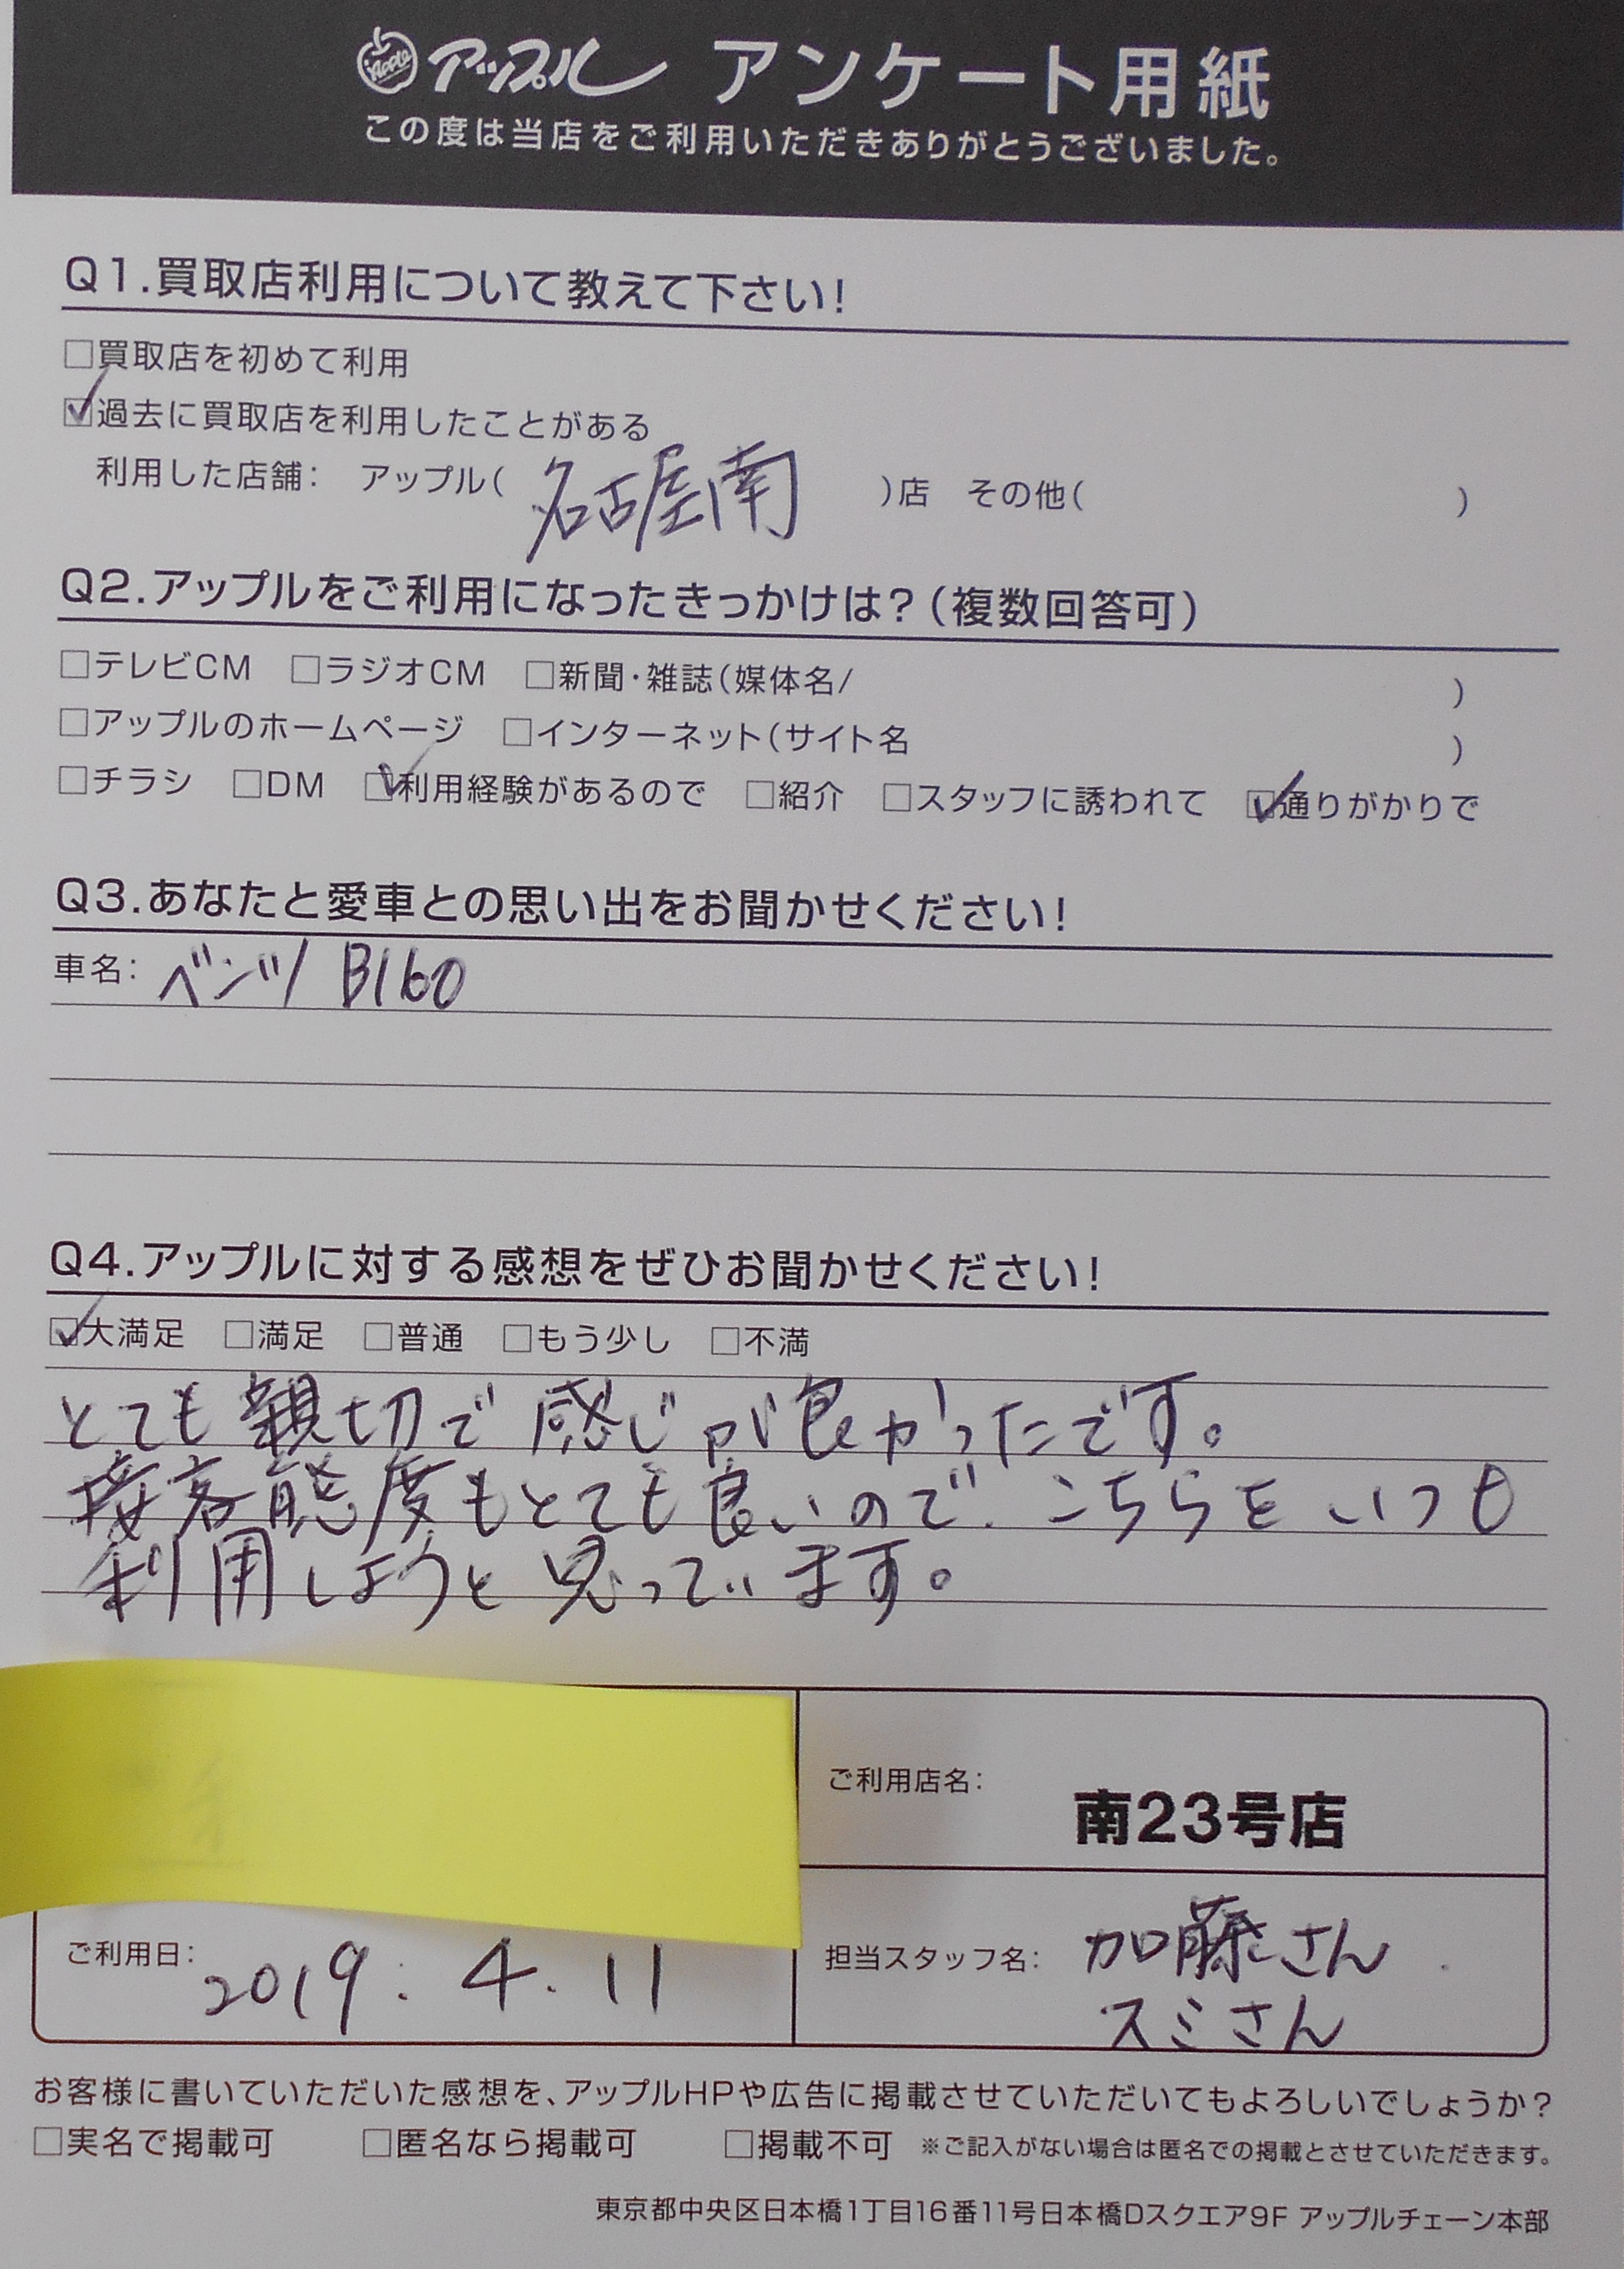 Apple アップル アンケート用紙
この度は当店をご利用いただきありがとうございました。
Q1.買取店利用について教えて下さい!
□買取店を初めて利用
☑過去に買取店を利用したことがある
利用した店舗: アップル( 名古屋南 )店 その他( )
Q2.アップルをご利用になったきっかけは?(複数回答可)
□テレビCM □ラジオCM □新聞・雑誌(媒体名/ )
□アップルのホームページ □インターネット(サイト名 )
□チラシ □DM ☑利用経験があるので □紹介 □スタッフに誘われて ☑通りがかりで
Q3.あなたと愛車との思い出をお聞かせください!
車名: ベンツ B160
Q4.アップルに対する感想をぜひお聞かせください!
☑大満足 □満足 □普通 □もう少し □不満
とても親切で感じが良かったです。
接客態度もとても良いので、こちらをいつも
利用しようと思っています。
ご利用店名: 南23号店
ご利用日: 2019. 4. 11
担当スタッフ名: 加藤さん
スミさん
お客様に書いていただいた感想を、アップルHPや広告に掲載させていただいてもよろしいでしょうか?
□実名で掲載可 □匿名なら掲載可 □掲載不可 ※ご記入がない場合は匿名での掲載とさせていただきます。
東京都中央区日本橋1丁目16番11号日本橋Dスクエア9F アップルチェーン本部